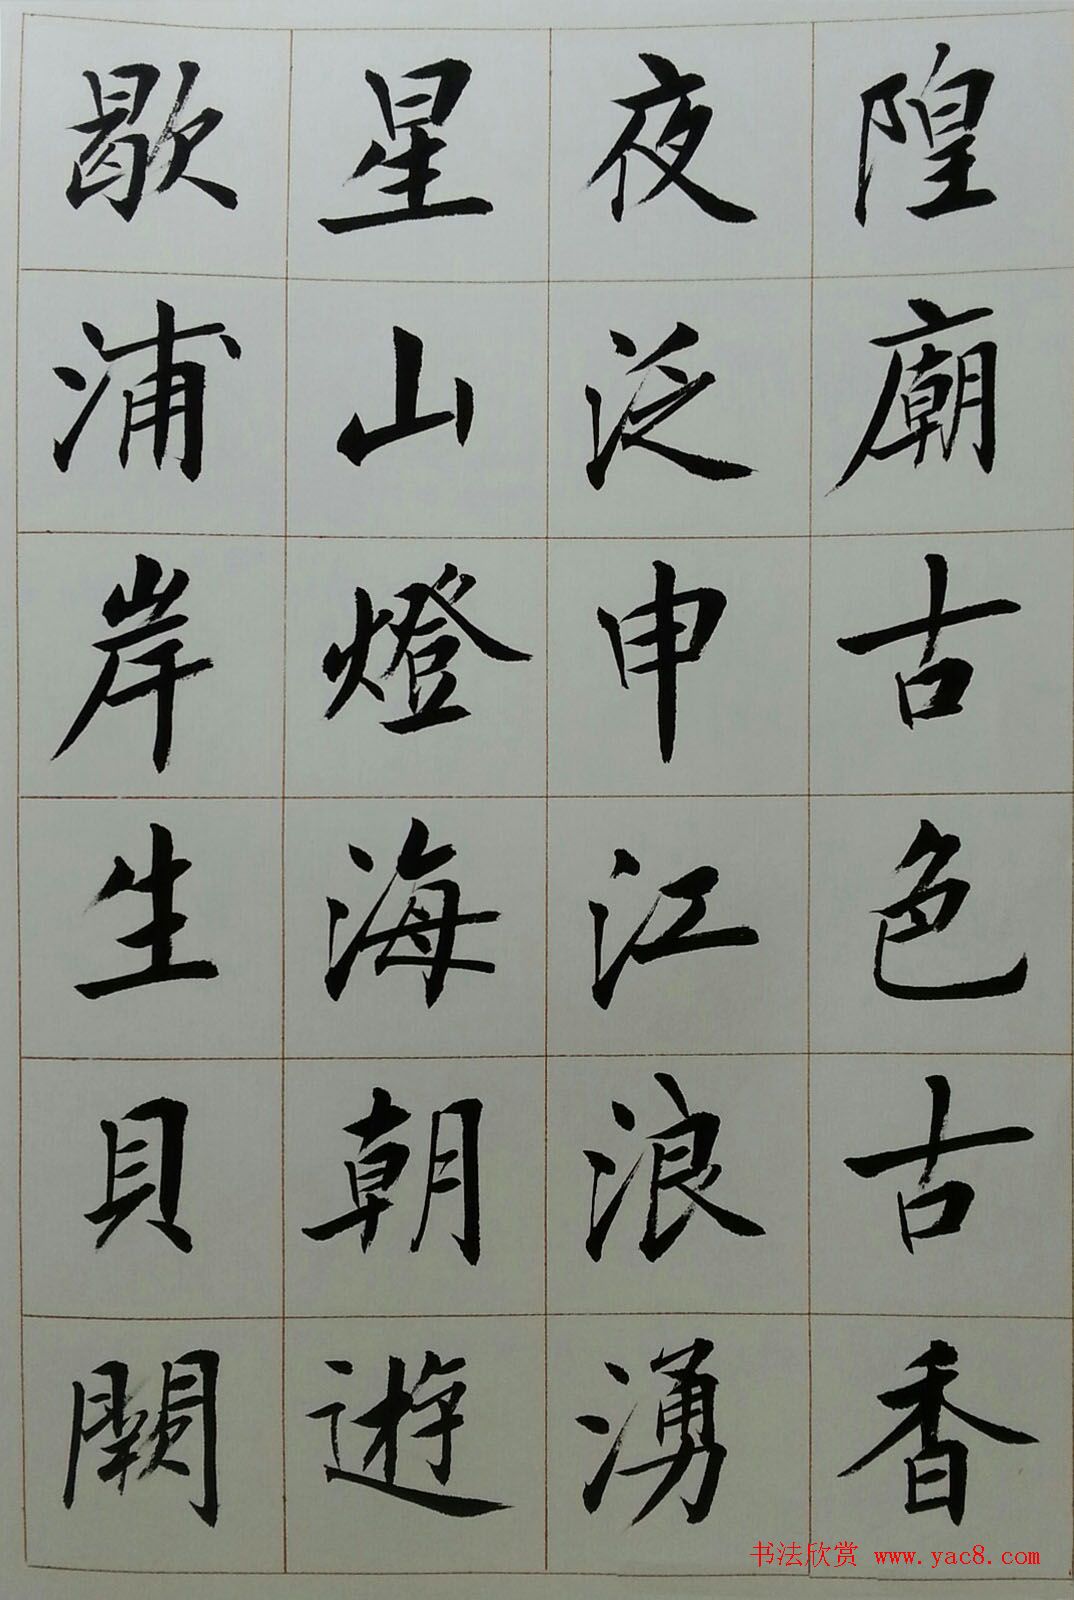 隍廟古色古香
夜泛申江浪湧
星山燈海朝遊
歇浦岸生貝闕
书法欣赏 www.yac8.com